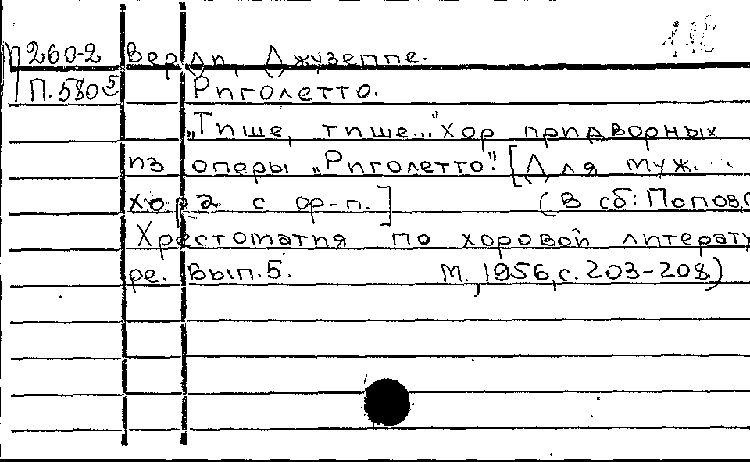 П260-2 Верди, Джузеппе.
П.580⁵ Риголетто.
„Тише, тише..." Хор придворных
из оперы „Риголетто". [Для муж.
хора с ор-п.] (В сб: Попов С
Хрестоматия по хоровой литерату
ре. Вып.5. М., 1956, с. 203-208)